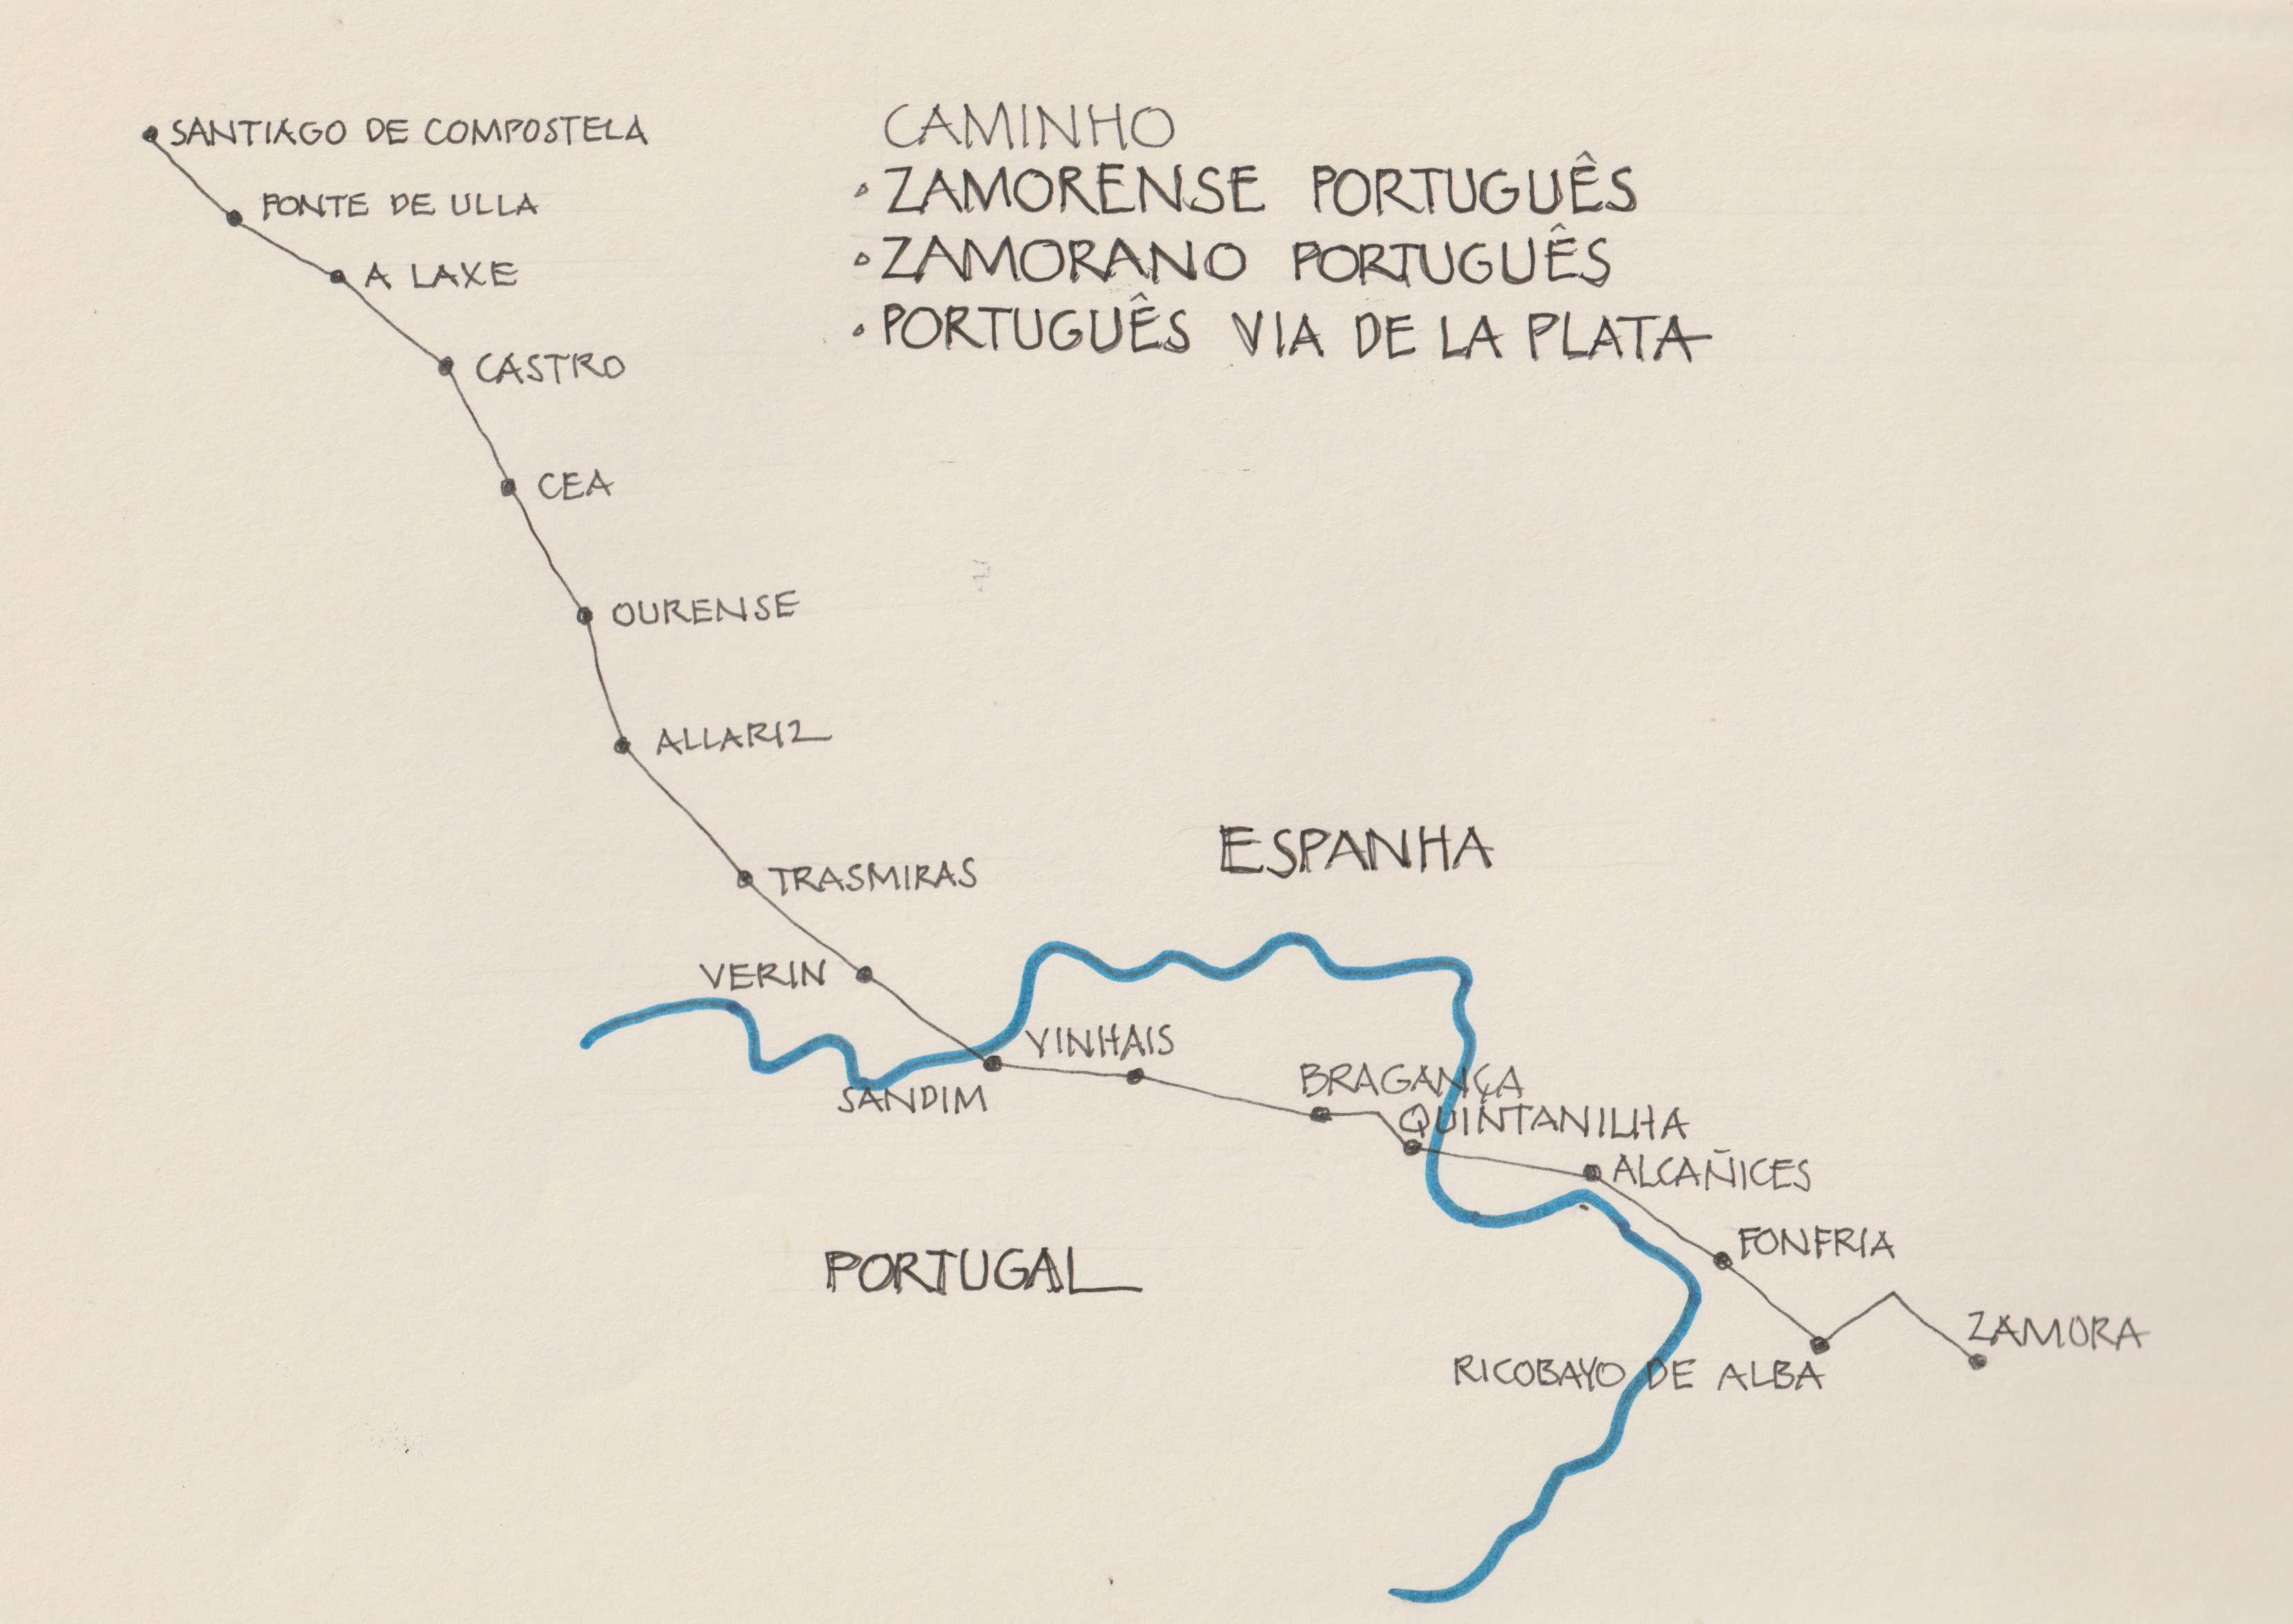 CAMINHO
• ZAMORENSE PORTUGUÊS
• ZAMORANO PORTUGUÊS
• PORTUGUÊS VIA DE LA PLATA
SANTIAGO DE COMPOSTELA
PONTE DE ULLA
A LAXE
CASTRO
CEA
OURENSE
ALLARIZ
TRASMIRAS
ESPANHA
VERIN
VINHAIS
SANDIM
BRAGANÇA
QUINTANILHA
ALCAÑICES
FONFRIA
PORTUGAL
ZAMORA
RICOBAYO DE ALBA